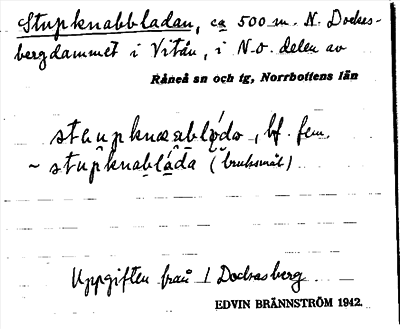 Stupknabbladan, ca 500 m. N. Dockas-
bergdammet i Vitån, i N.o. delen av
Råneå sn och tg, Norrbottens län
stupknabbláda, bf. fem.
~ stupknabláda (bruksmål)
Uppgiften från / Dockasberg
EDVIN BRÄNNSTRÖM 1942.